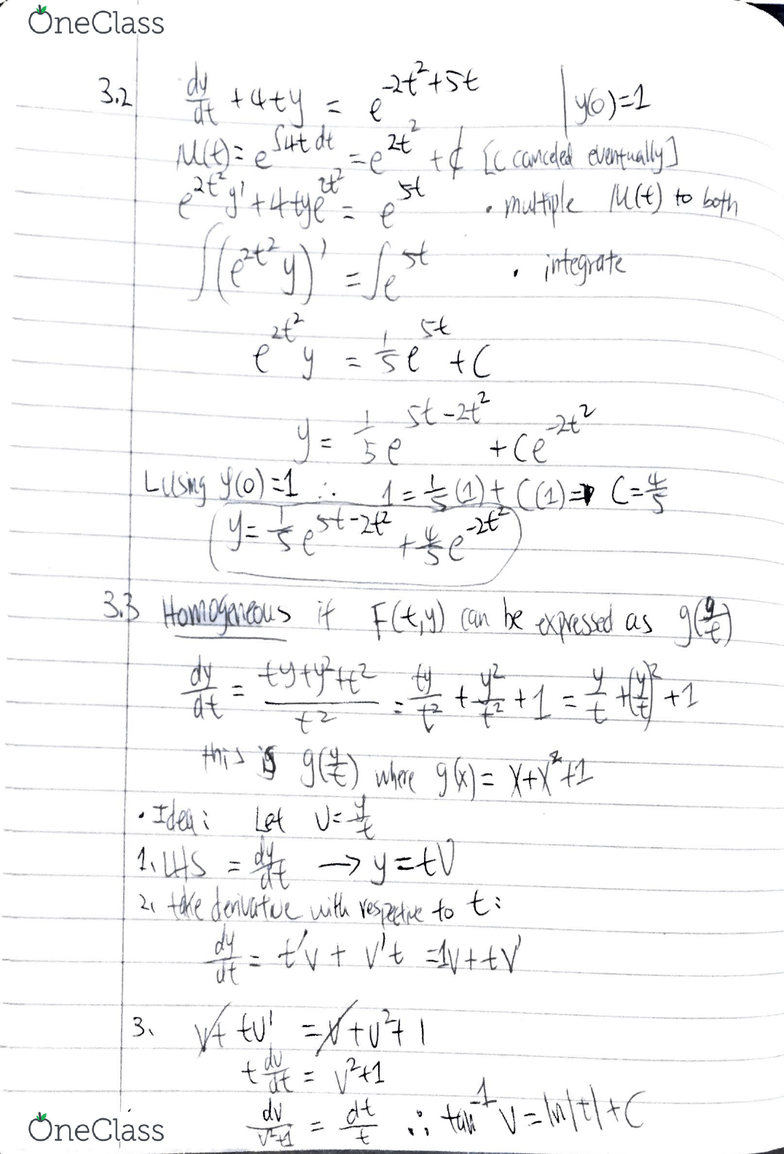 OneClass
3.2 dy/dt + 4ty = e^(-2t²+5t) | y(0)=1
M(t) = e^(∫4t dt) = e^(2t²) + C [C canceled eventually]
e^(2t²)y' + 4tye^(2t²) = e^(5t) • multiple M(t) to both
∫(e^(2t²) y)' = ∫e^(5t) • integrate
e^(2t²) y = 1/5 e^(5t) + C
y = 1/5 e^(5t-2t²) + Ce^(-2t²)
Using y(0)=1 ∴ 1 = 1/5(1) + C(1) ⇒ C = 4/5
y = 1/5 e^(5t-2t²) + 4/5 e^(-2t²)
3.3 Homogeneous if F(t,y) can be expressed as g(y/t)
dy/dt = (ty+y²+t²)/t² = ty/t² + y²/t² + 1 = y/t + (y/t)² + 1
this is g(y/t) where g(x) = x+x²+1
• Idea: Let v = y/t
1. LHS = dy/dt → y = tv
2. take derivative with respective to t:
dy/dt = t'v + v't = 1v + tv'
3. v + tv' = v + v² + 1
t dv/dt = v²+1
dv/(v²+1) = dt/t ∴ tan⁻¹ v = ln|t| + C
OneClass